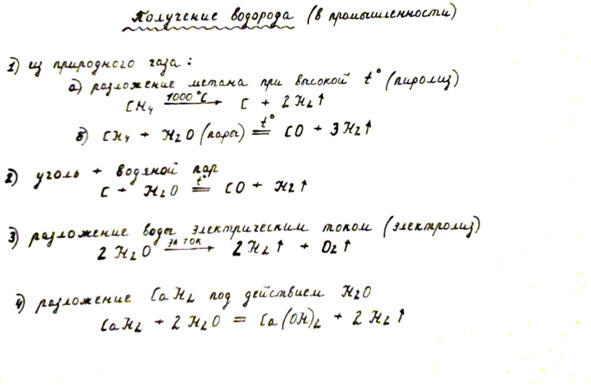 Получение водорода (в промышленности)
1) из природного газа:
а) разложение метана при высокой t° (пиролиз)
CH₄ 1000°C → C + 2H₂↑
б) CH₄ + H₂O (пары) t° = CO + 3H₂↑
2) уголь + водяной пар
C + H₂O t° = CO + H₂↑
3) разложение воды электрическим током (электролиз)
2H₂O эл. ток → 2H₂↑ + O₂↑
4) разложение CaH₂ под действием H₂O
CaH₂ + 2H₂O = Ca(OH)₂ + 2H₂↑